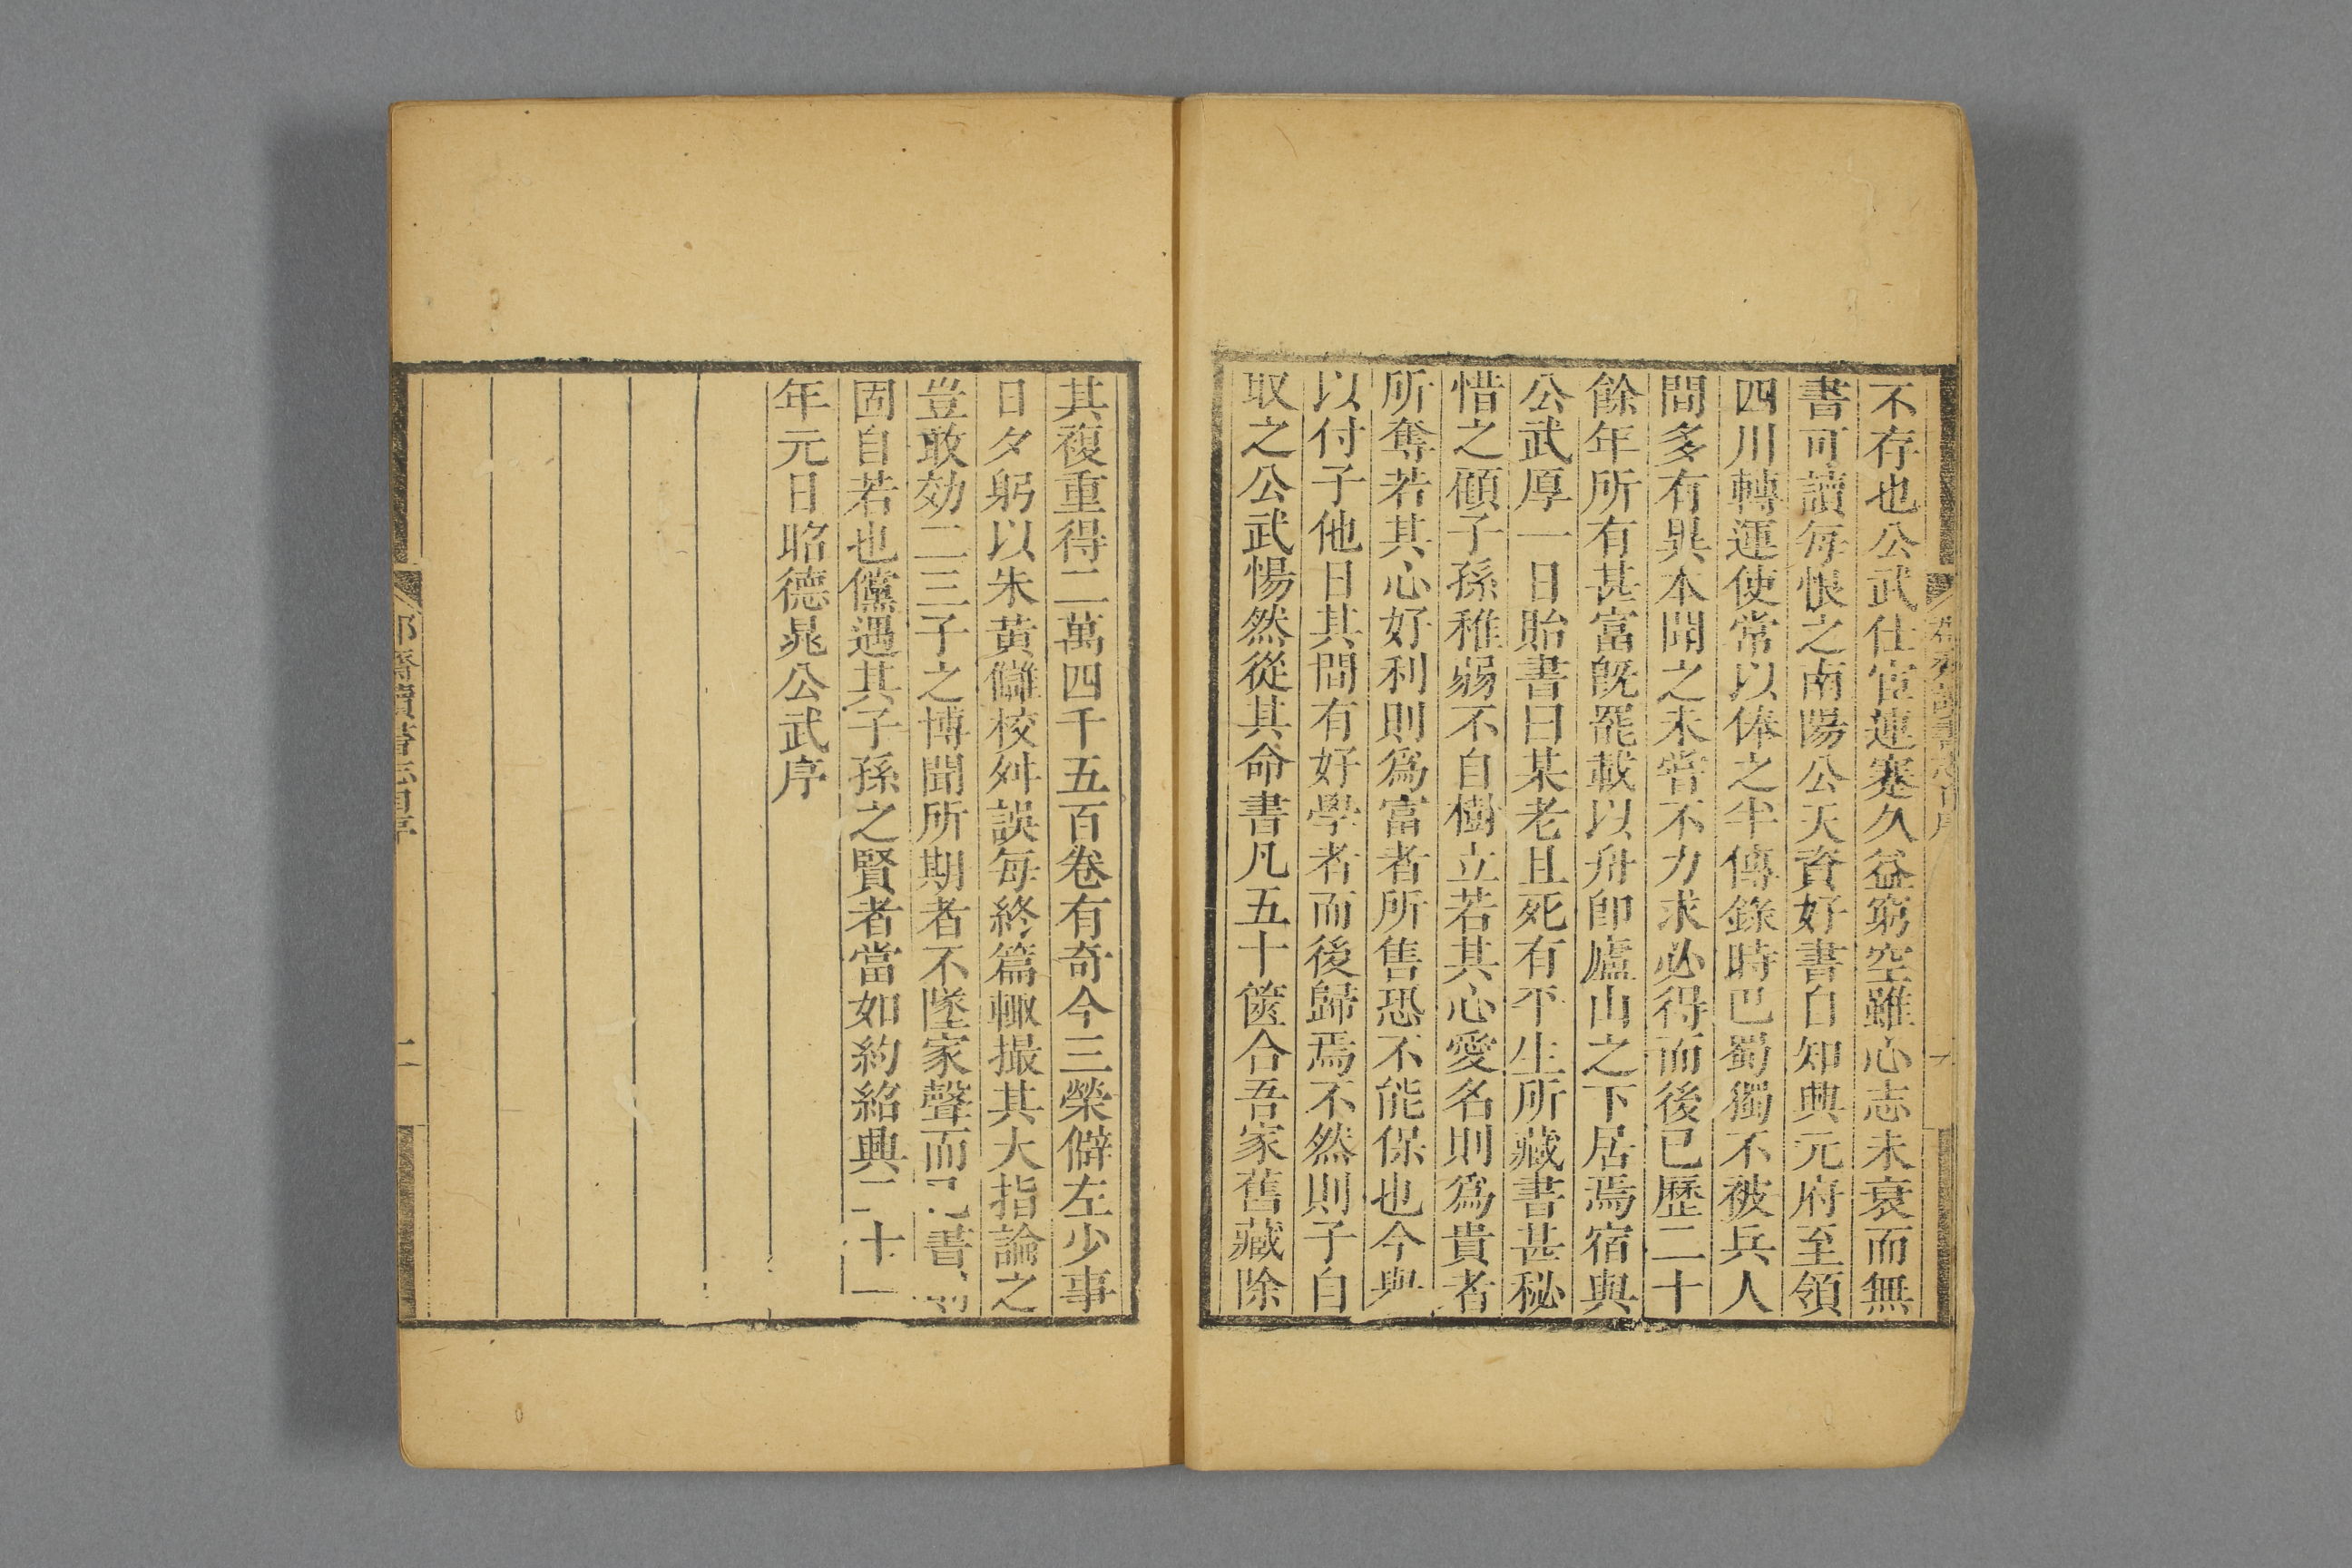 不存也公武仕宦連蹇久益窮空雖心志未衰而無
書可讀每恨之南陽公天資好書自知興元府至領
四川轉運使常以俸之半傳錄時巴蜀獨不被兵人
間多有異本聞之未嘗不力求必得而後已歷二十
餘年所有甚富旣罷載以舟卽廬山之下居焉宿與
公武厚一日貽書曰某老且死有平生所藏書甚秘
惜之顧子孫稚弱不自樹立若其心愛名則爲貴者
所奪若其心好利則爲富者所售恐不能保也今舉
以付子他日其間有好學者而後歸焉不然則子自
取之公武惕然從其命書凡五十篋合吾家舊藏除
其複重得二萬四千五百卷有奇今三榮僻左少事
日夕躬以朱黃讎校舛誤每終篇輒撮其大指論之
豈敢効二三子之博聞所期者不墜家聲而書
固自若也儻遇其子孫之賢者當如約紹興二十一
年元日昭德晁公武序
二